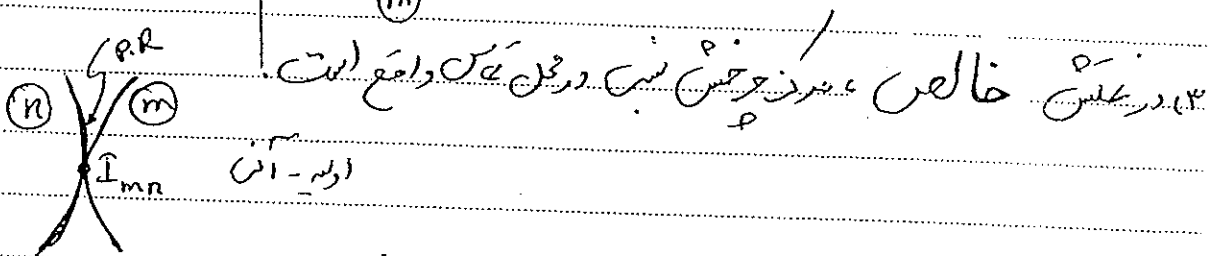 m
P.R
۳) در غلتش خالص، مرکز چرخش نسبی در محل تماس واقع است.
n m
I mn
اولیه - آنی